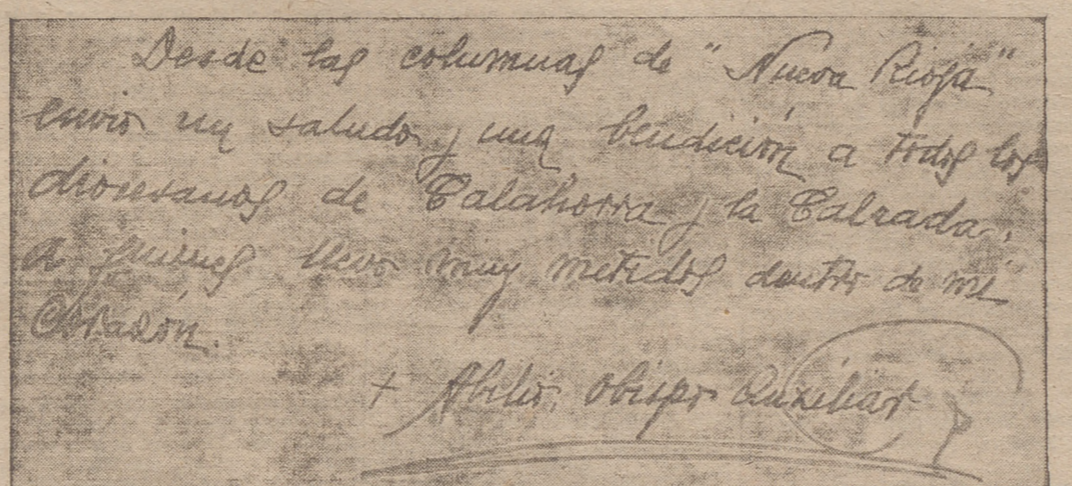 Desde las columnas de "Nueva Rioja"
envio un saludo y una bendición a todos los
diocesanos de Calahorra y la Calzada,
a quienes llevo muy metidos dentro de mi
Corazón.
+ Abilio, Obispo Auxiliar